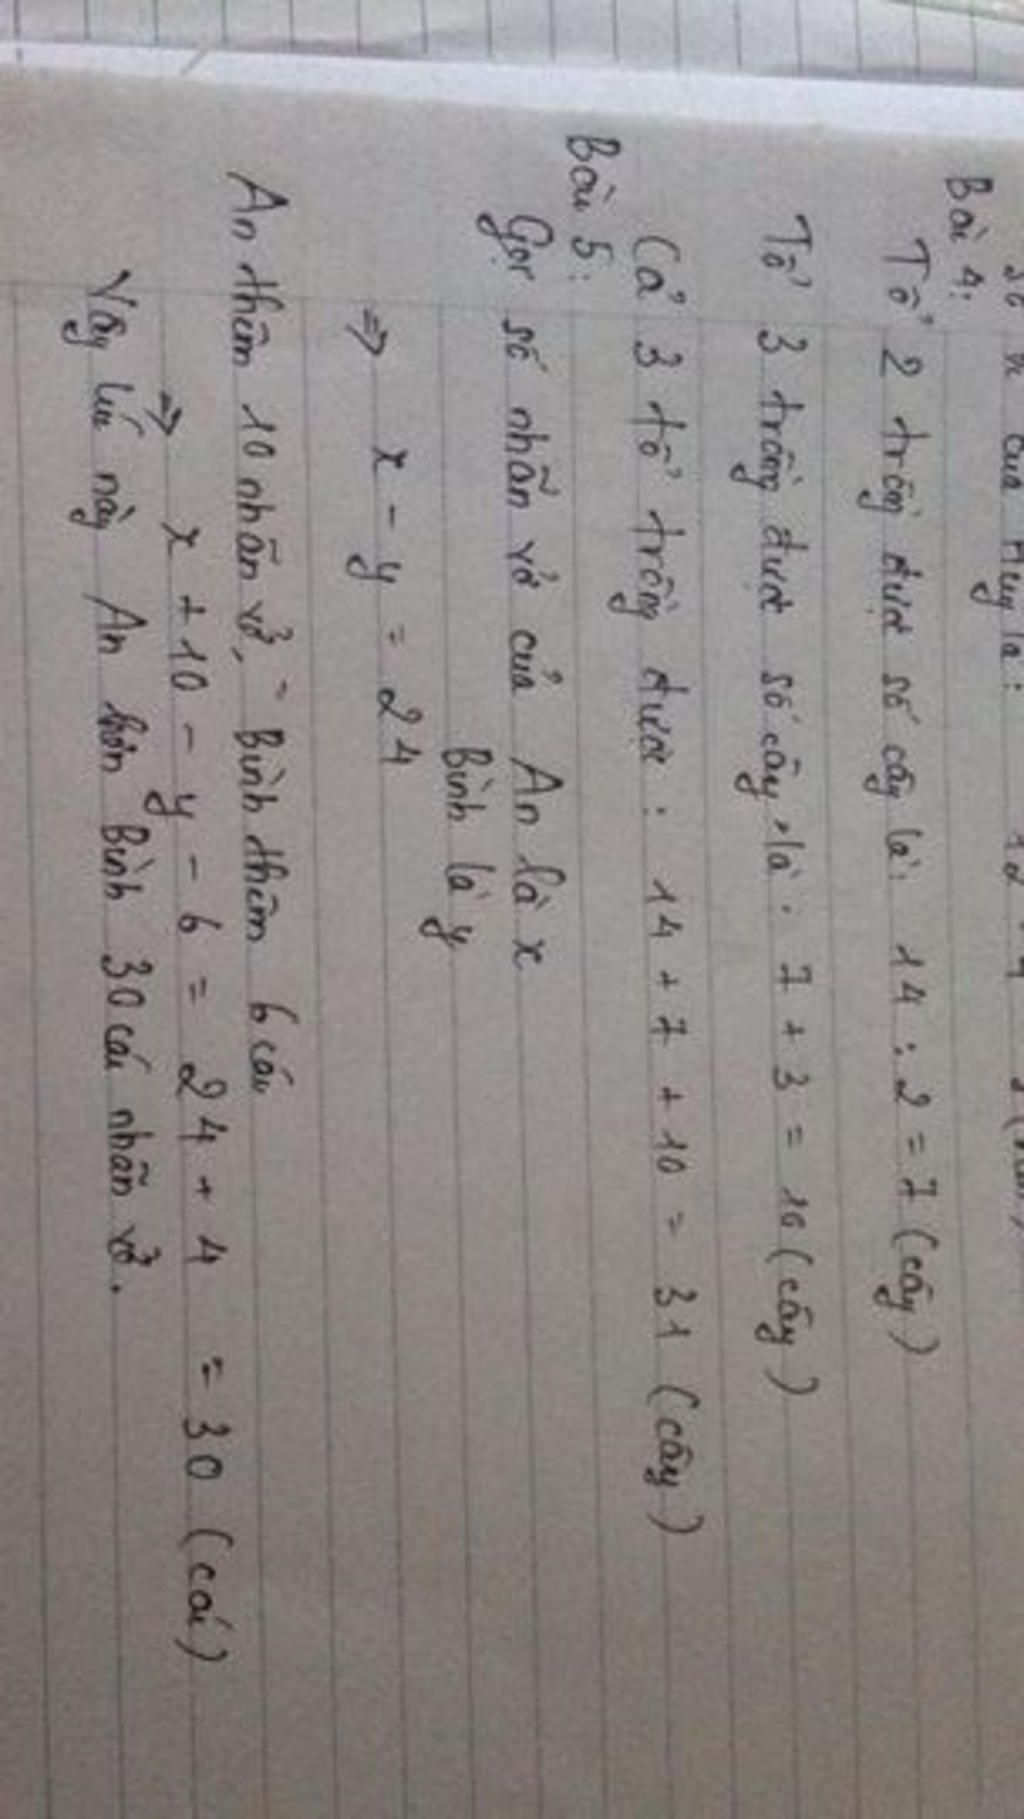 của Huy là:
Bài 4:
Tổ 2 trồng được số cây là: 14 : 2 = 7 (cây)
Tổ 3 trồng được số cây là: 7 + 3 = 10 (cây)
Cả 3 tổ trồng được : 14 + 7 + 10 = 31 (cây)
Bài 5:
Gọi số nhãn vở của An là x
Bình là y
=> x - y = 24
An thêm 10 nhãn vở, Bình thêm 6 cái
=> x + 10 - y - 6 = 24 + 4 = 30 (cái)
Vậy lúc này An hơn Bình 30 cái nhãn vở.